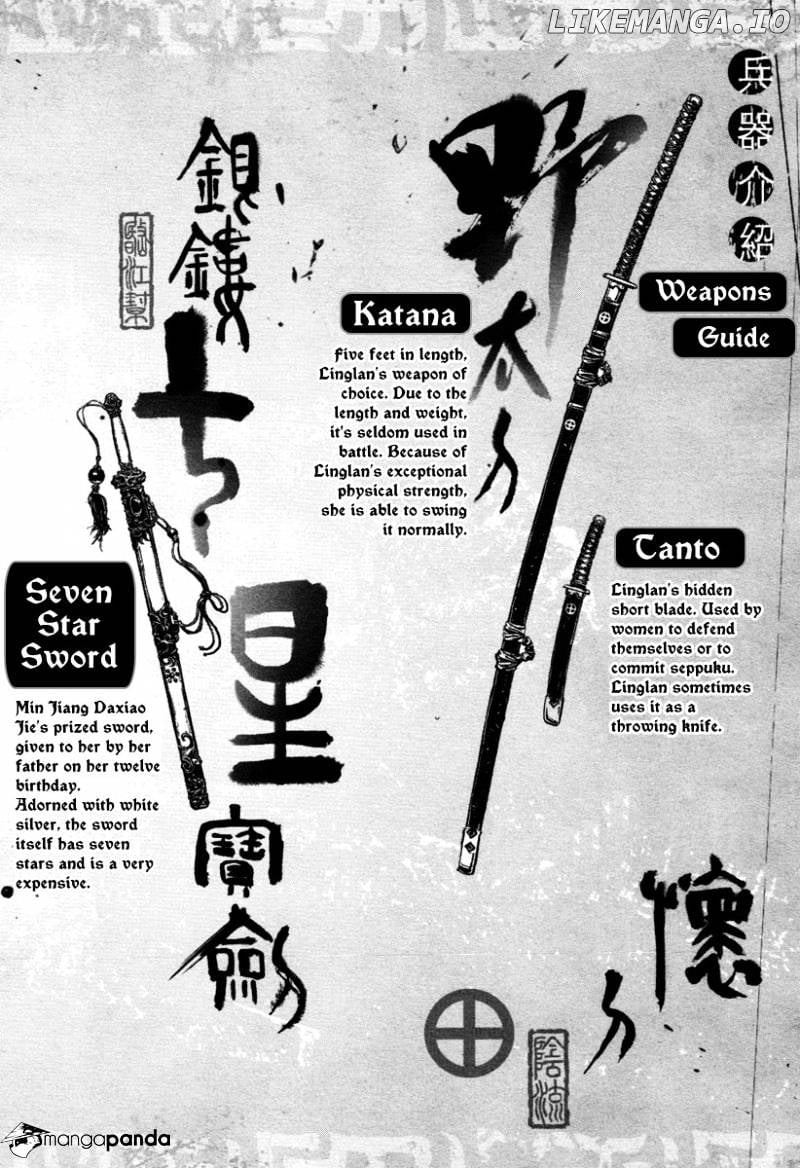 LIKEMANGA.IO
兵器介紹
Weapons
Guide
野太刀
Katana
Five feet in length,
Linglan's weapon of
choice. Due to the
length and weight,
it's seldom used in
battle. Because of
Linglan's exceptional
physical strength,
she is able to swing
it normally.
Tanto
Linglan's hidden
short blade. Used by
women to defend
themselves or to
commit seppuku.
Linglan sometimes
uses it as a
throwing knife.
懷刀
陰流
銀鏤
七星
寶劍
臨江幫
Seven
Star
Sword
Min Jiang Daxiao
Jie's prized sword,
given to her by her
father on her twelve
birthday.
Adorned with white
silver, the sword
itself has seven
stars and is a very
expensive.
mangapanda